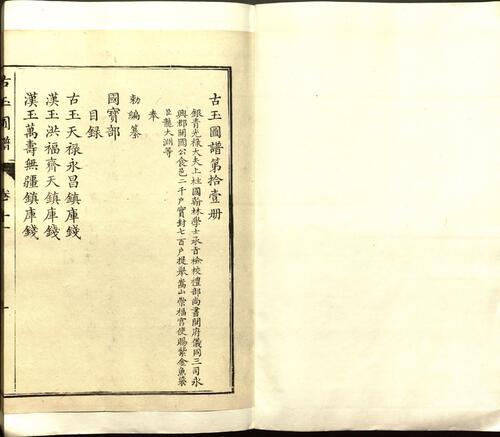 古玉圖譜第拾壹册
銀青光祿大夫上柱國翰林學士承旨檢校禮部尚書開府儀同三司永
興郡開國公食邑二千户實封七百户提舉嵩山崇福宮使賜紫金魚袋
臣龍大淵等
奉
勅編纂
國寶部
目錄
古玉天祿永昌鎮庫錢
漢玉洪福齊天鎮庫錢
漢玉萬壽無疆鎮庫錢
古玉圖譜
卷十一
一